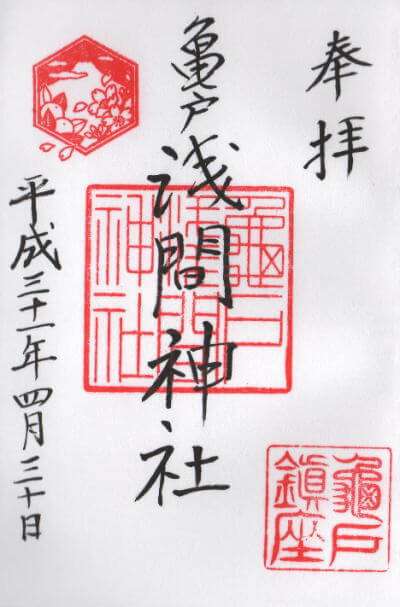 奉拝
亀戸浅間神社
龜戸
浅間
神社
平成三十一年四月三十日
龜戸
鎮座